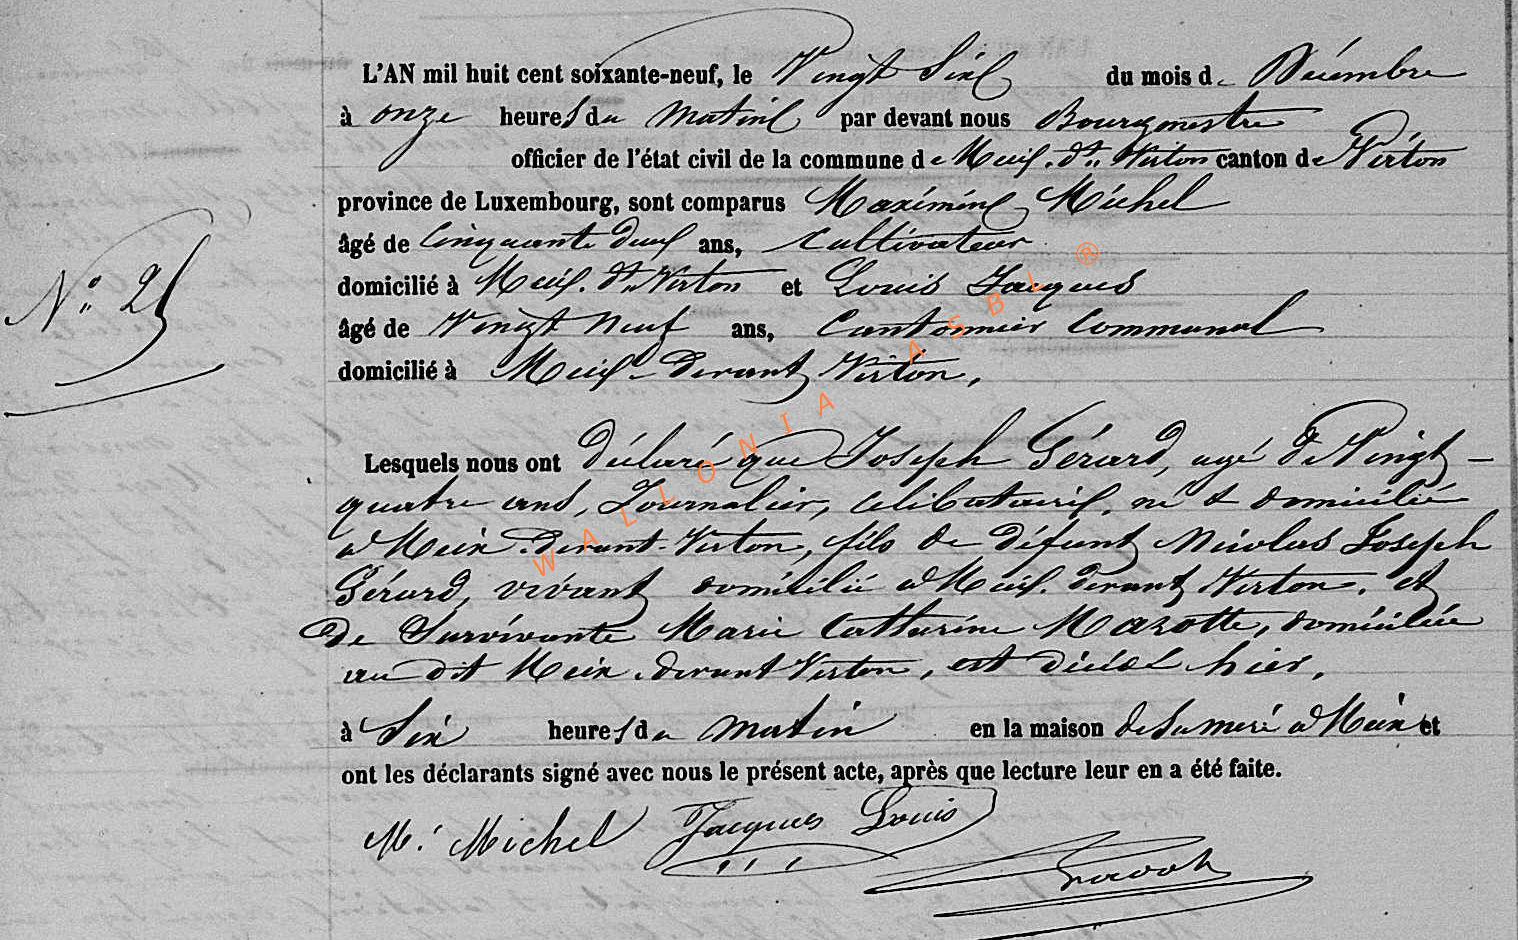 L'AN mil huit cent soixante-neuf, le Vingt Six du mois de Décembre
à onze heures du Matin par devant nous Bourgmestre
officier de l'état civil de la commune de Meix. dt. Virton canton de Virton
province de Luxembourg, sont comparus Maximin Michel
âgé de Cinquante deux ans, Cultivateur
N° 25
domicilié à Meix. dt. Virton et Louis Jacques
âgé de Vingt Neuf ans, Cantonnier Communal
domicilié à Meix devant Virton.
Lesquels nous ont déclaré que Joseph Gérard, agé de Vingt-
quatre ans, Journalier, célibataire, né & domicilié
à Meix-devant-Virton, fils de défunt Nicolas Joseph
Gérard, vivant domicilié à Meix. devant Virton. et
de Survivante Marie Catherine Mazotte, domiciliée
au dit Meix. devant Virton, est décédé hier,
à Six heures du matin en la maison de sa mere à Meix et
ont les déclarants signé avec nous le présent acte, après que lecture leur en a été faite.
M. Michel Jacques Louis
WALLONIA ASBL ®